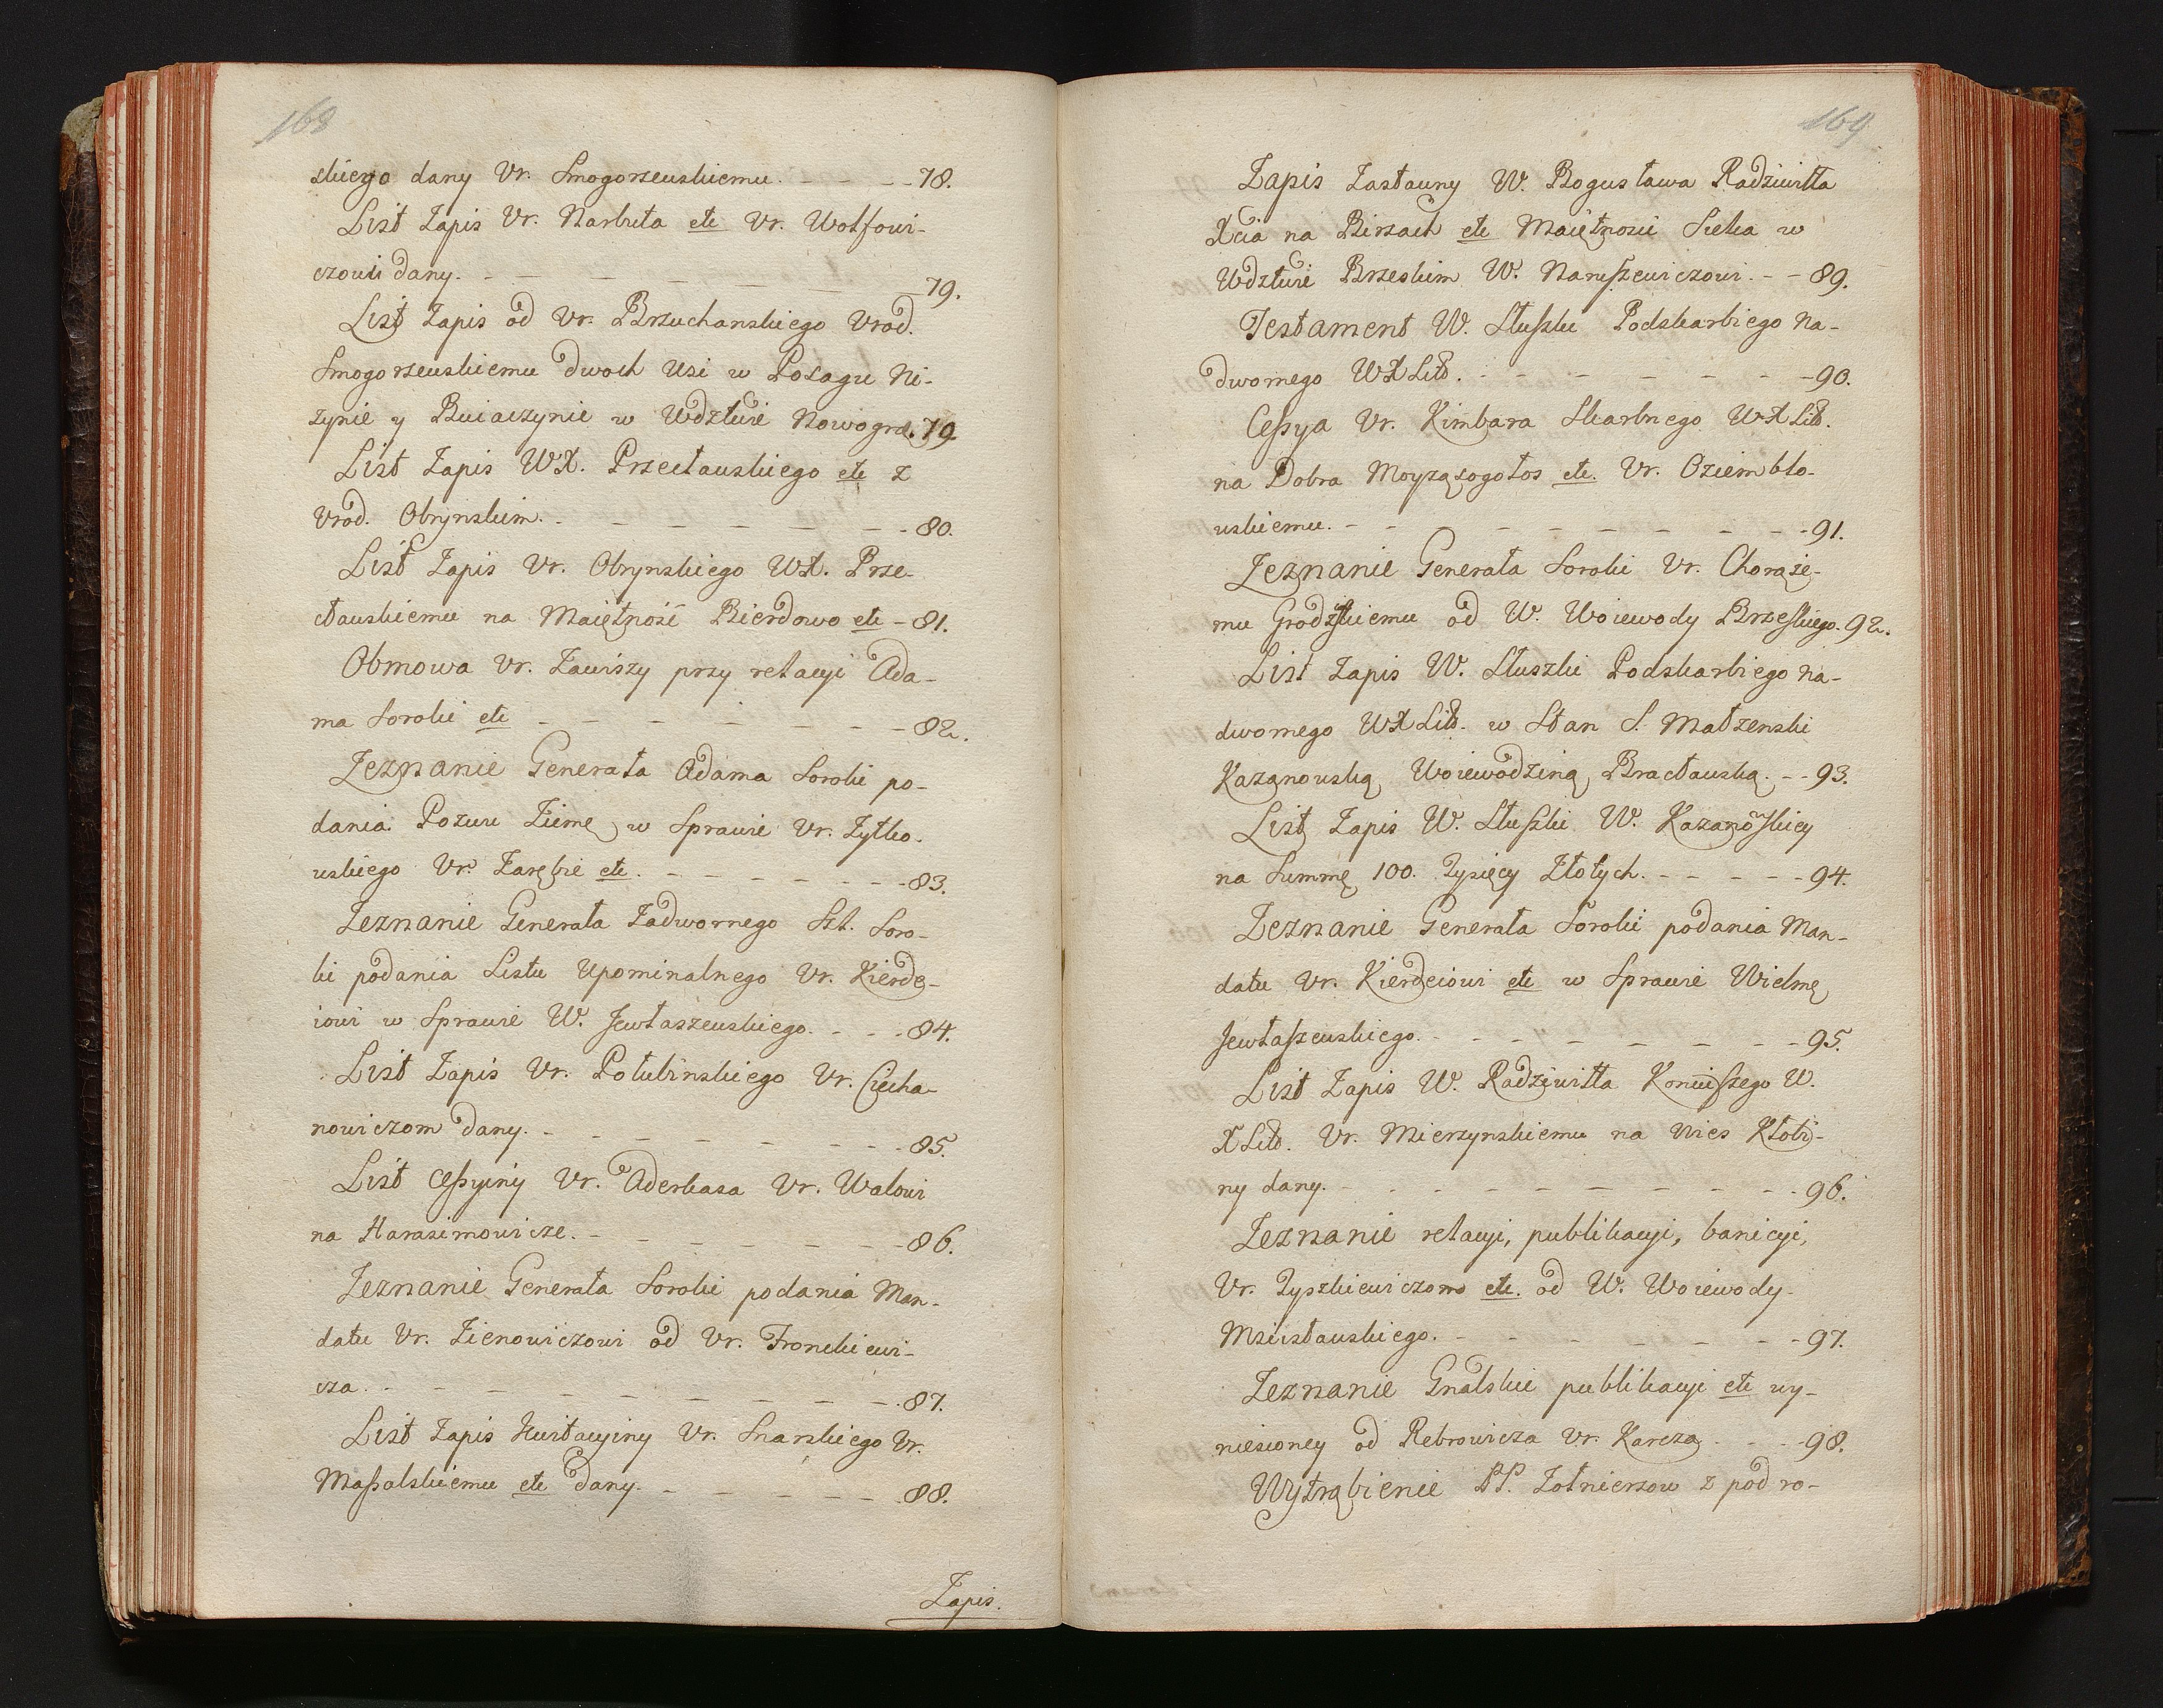 168
skiego dany Vr. Smogorzewskiemu. - - - - 78.
List Zapis Vr. Narbuta etc Vr. Wołłowi-
czowi dany. - - - - - - - 79.
List Zapis od Vr. Brzuchanskiego Vrod.
Smogorzewskiemu dwoch Wsi w Posagu Ni-
zynie y Buiaczynie w Wdztwie Nowogrd. 79
List Zapis WX. Przecławskiego etc z
Vrod. Obrynskim. - - - - - - - 80.
List Zapis Vr. Obrynskiego WX. Prze-
cławskiemu na Maiętność Bierdowo etc - 81.
Obmowa Vr. Zawiszy przy relacyi Ada-
ma Soroki etc - - - - - - - 82.
Zeznanie Generała Adama Soroki po-
dania Pozwu Ziemę, w Sprawie Vr. Zytko-
wskiego Vr. Zarębie etc. - - - - - - - 83.
Zeznanie Generała Zadwornego Skł. Soro-
ki podania Listu Upominalnego Vr. Kierde-
iowi w Sprawie W. Jewłaszewskiego. - - - 84.
List Zapis Vr. Połubinskiego Vr. Ciecha-
nowiczom dany. - - - - - - - 85.
List Cessyiny Vr. Aderkasa Vr. Walowi
na Harasimowicze. - - - - - - - 86.
Zeznanie Generała Soroki podania Man-
datu Vr. Zienowiczowi od Vr. Fronckiewi-
cza. - - - - - - - - - 87.
List Zapis Kwitacyiny Vr. Snarskiego Vr.
Massalskiemu etc dany. - - - - - 88.
Zapis.
169
Zapis Zastawny W. Bogusława Radziwiłła
Xcia na Birzach etc Maiętnosci Sielca w
Wdztwie Brzeskim W. Naruszewiczowi. - - 89.
Testament W. Słuszki Podskarbiego Na-
dwornego WXLitt. - - - - - - - 90.
Cessya Vr. Kimbara Skarbnego WXLitt.
na Dobra Moyzagogołos etc. Vr. Oziembło-
wskiemu. - - - - - - - - - 91.
Zeznanie Generała Soroki Vr. Chorąże-
mu Grodzskiemu od W. Woiewody Brzeskiego. 92.
List Zapis W. Słuszki Podskarbiego Na-
dwornego WXLitt. w Stan S. Małzenski
Kazanowską Woiewodziną Bracławską. - - 93.
List Zapis W. Słuszki W. Kazanowskiey
na Summę 100. Tysięcy Złotych. - - - - - 94.
Zeznanie Generała Soroki podania Man-
datu Vr. Kierdeiowi etc w Sprawie Wielmę
Jewłaszewskiego. - - - - - - - 95.
List Zapis W. Radziwiłła Koniuszego W.
XLitt. Vr. Mierzynskiemu na Wies Kłobi-
ny dany. - - - - - - - - - 96.
Zeznanie relacyi, publikacyi, banicyi,
Vr. Tyszkiewiczowi etc. od W. Woiewody
Mscisławskiego. - - - - - - - 97.
Zeznanie Gnalskie publikacyi etc wy-
niesioney od Rebrowicza Vr. Karcza. - - - 98.
Wytrąbienie PP. Zołnierzow z pod ro-